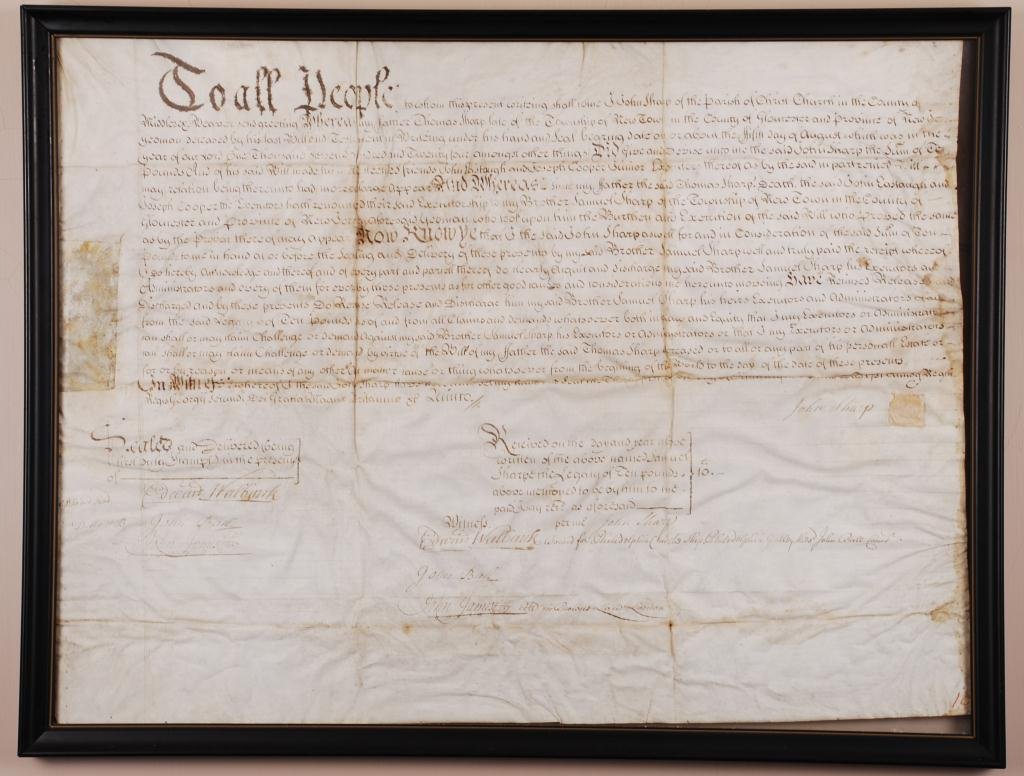 To all People to whom this present writing shall come I John Sharp of the Parish of Christ Church in the County of
Middlesex Weaver send greeting Whereas my father Thomas Sharp late of the Township of New Town in the County of Gloucester and Province of New Jer
yeoman deceased by his last Will and Testament in Writeing under his hand and Seal bearing date on or about the fifth day of August which was in the
year of our Lord One Thousand seven hundred and Twenty four amongst other things Did give and devise unto me the said John Sharp the Sum of Ten
Pounds And of his said Will made his friends John Eastaugh and Joseph Cooper Junior thereof as by the said in part recited Will
may relation being thereunto had more large appear And Whereas since my father the said Thomas Sharps Death, the said John Eastaugh and
Joseph Cooper the Executors hath renounced their said Executorship to my Brother Samuel Sharp of the Township of New Town in the County of
Gloucester and Province of New Jersey aforesaid yeoman who took upon him the Burthen and Execution of the said Will who proved the same
as by the Probat thereof may appear Now Know ye that I the said John Sharp as well for and in Consideration of the said Sum of Ten
Pounds to me in hand at or before the Sealing and Delivery of these presents by my said Brother Samuel Sharp well and truly paid the receipt whereof
I do hereby acknowledge and thereof and of every part and parcell thereof do clearly acquit and discharge my said Brother Samuel Sharp his Executors and
Administrators and every of them for ever by these presents as for other good causes and considerations me hereunto moveing Have Remised Released and
Discharged and by these presents Do Remise Release and Discharge him my said Brother Samuel Sharp his heirs Executors and Administrators of and
from the said Legacy of Ten Pounds, as of and from all Claims and demands whatsoever both in Law and Equity that I my Executors or Administrators
can shall or may claim Challenge or demand against my said Brother Samuel Sharp his Executors or Administrators or that I my Executors or Administrators
can shall or may claim Challenge or demand by virtue of the Will of my father the said Thomas Sharp deceased or to all or any part of his personall Estate or
for or by reason or means of any other matter cause or thing whatsoever from the beginning of the world to the day of the date of these presents
In Witness whereof I the said John Sharp have
Regis Georgii secundi Dei Gratia Magne Britannie &c
John Sharp
Sealed and Delivered (being
first duly stamp'd) in the presence
of
Edward Walbank
John Bird
John
Received on the day and year above
written of the above named Samuel
Sharp the Legacy of Ten pounds 10
above mentioned to be by him to me
paid I say recd. as aforesaid
Witness per me John Sharp
Edward Walbank bound for Philadelphia Ship Philadelphia John Ball
John Bird
John